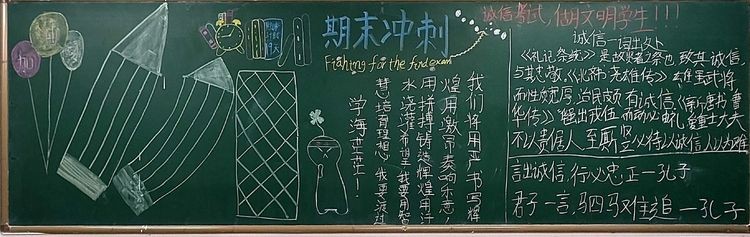 加
油
期末冲刺
Fighting for the final exam
我们将用血书写辉
煌用激昂奏响乐志！
用拼搏铸造辉煌用汗
水浇灌希望我要用智
慧培育理想我要渡过
学海茫茫！
诚信考试，做文明学生！！！
诚信一词出处
《礼记祭统》是故贤者之祭也致其诚信，
与其忠敬，《北齐·尧雄传》雄虽武将，
而性质宽厚，治民颇有诚信，《新唐书·曹
华传》华虽出戎伍而动必由礼，爱士大夫
不以贵倨人至厮竖必待以诚信人以为难
言出诚信，行必忠正—孔子
君子一言，驷马难追—孔子